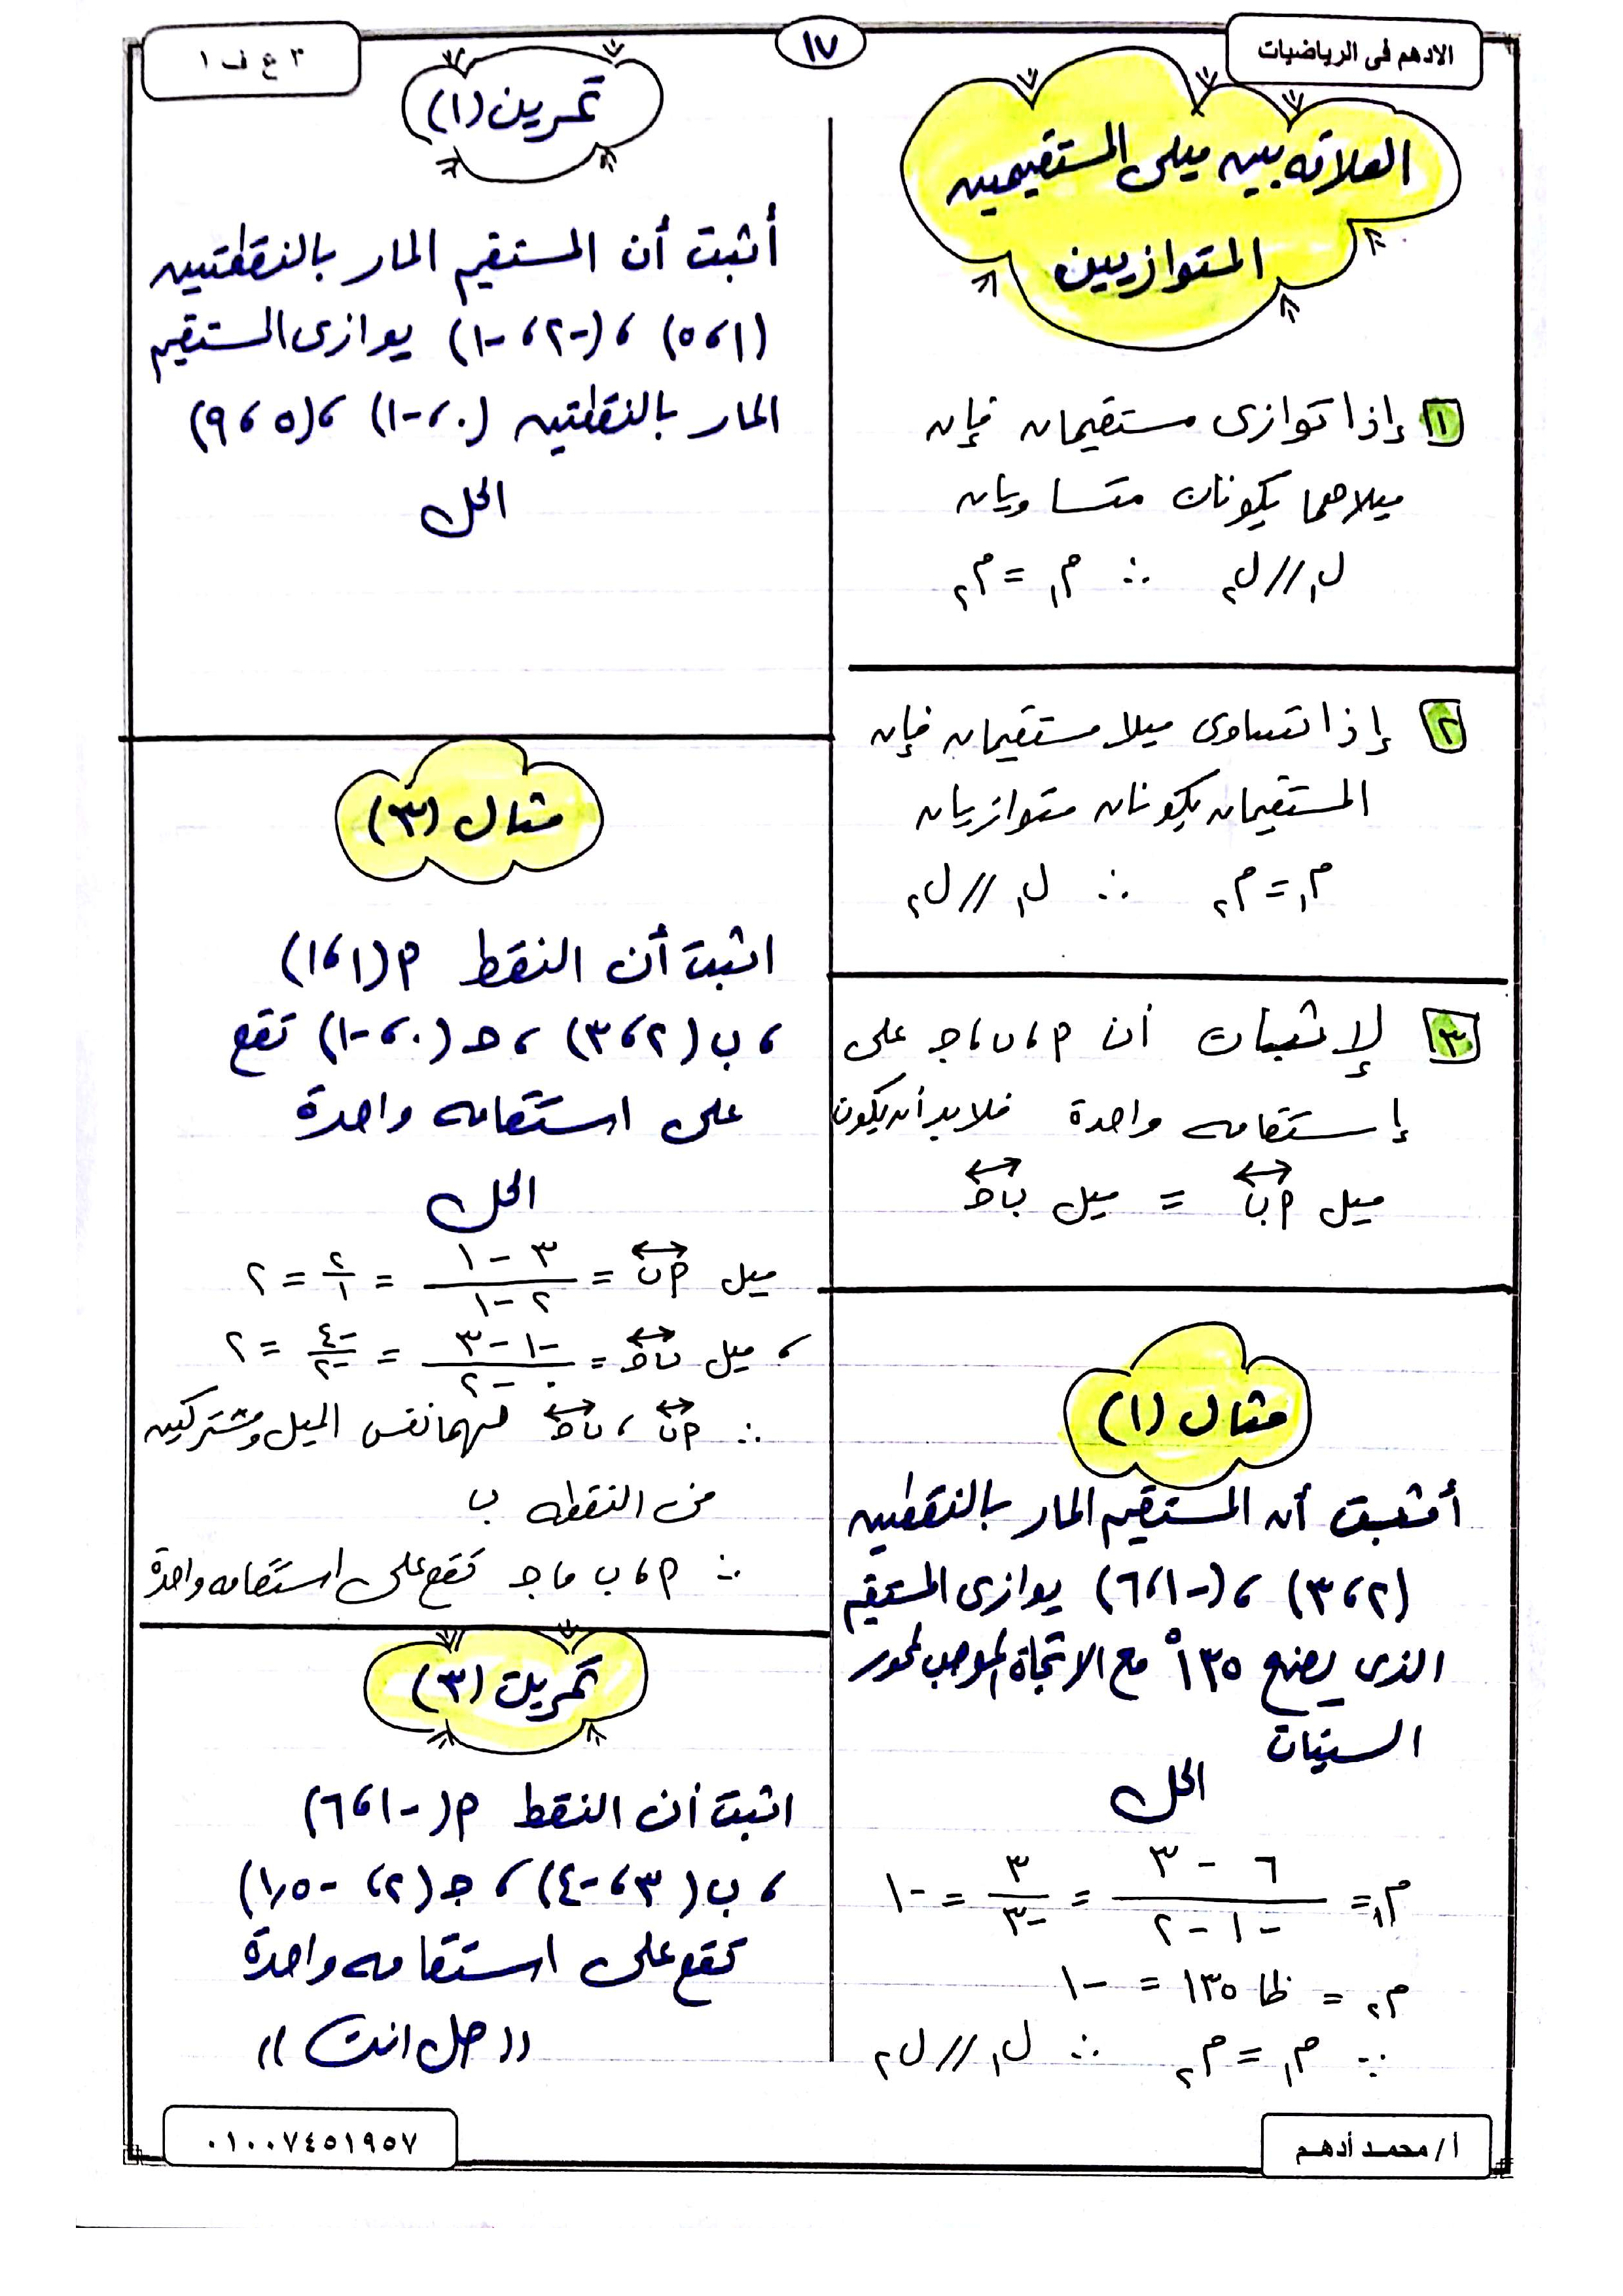 الادهم فى الرياضيات
١٧
٣ ع ف ١
العلاقه بين ميلى المستقيمين
المتوازيين
١ إذا توازى مستقيمان فإن
ميلاهما يكونان متساويان
ل₁ // ل₂ ∴ م₁ = م₂
٢ إذا تساوى ميلا مستقيمان فإن
المستقيمان يكونان متوازيان
م₁ = م₂ ∴ ل₁ // ل₂
٣ لإثبات أن م ، ب ، جـ على
إستقامه واحدة فلابد أن يكون
ميل م ب = ميل ب جـ
مثال (١)
أثبت أن المستقيم المار بالنقطتين
(٢ ، ٣) ، (-١ ، ٦) يوازى المستقيم
الذى يصنع ١٣٥° مع الاتجاة الموجب لمحور
السينات
الحل
م₁ = (٦ - ٣)/(-١ - ٢) = ٣/-٣ = -١
م₂ = ظا ١٣٥ = -١
∵ م₁ = م₂ ∴ ل₁ // ل₂
تمرين (١)
أثبت أن المستقيم المار بالنقطتين
(١ ، ٥) ، (-٢ ، -١) يوازى المستقيم
المار بالنقطتين (٠ ، -١) ، (٥ ، ٩)
الحل
مثال (٣)
اثبت أن النقط م (١ ، ١)
، ب (٢ ، ٣) ، جـ (٠ ، -١) تقع
على استقامه واحدة
الحل
ميل م ب = (٣ - ١)/(٢ - ١) = ٢/١ = ٢
، ميل ب جـ = (-١ - ٣)/(٠ - ٢) = -٤/-٢ = ٢
∴ م ب ، ب جـ لهما نفس الميل ومشتركين
فى النقطه ب
∴ م ، ب ، جـ تقع على استقامه واحدة
تمرين (٣)
اثبت أن النقط م (-١ ، ٦)
، ب (٣ ، -٤) ، جـ (٢ ، -١٫٥)
تقع على استقامه واحدة
(( حل انت ))
أ / محمد أدهم
٠١٠٠٧٤٥١٩٥٧